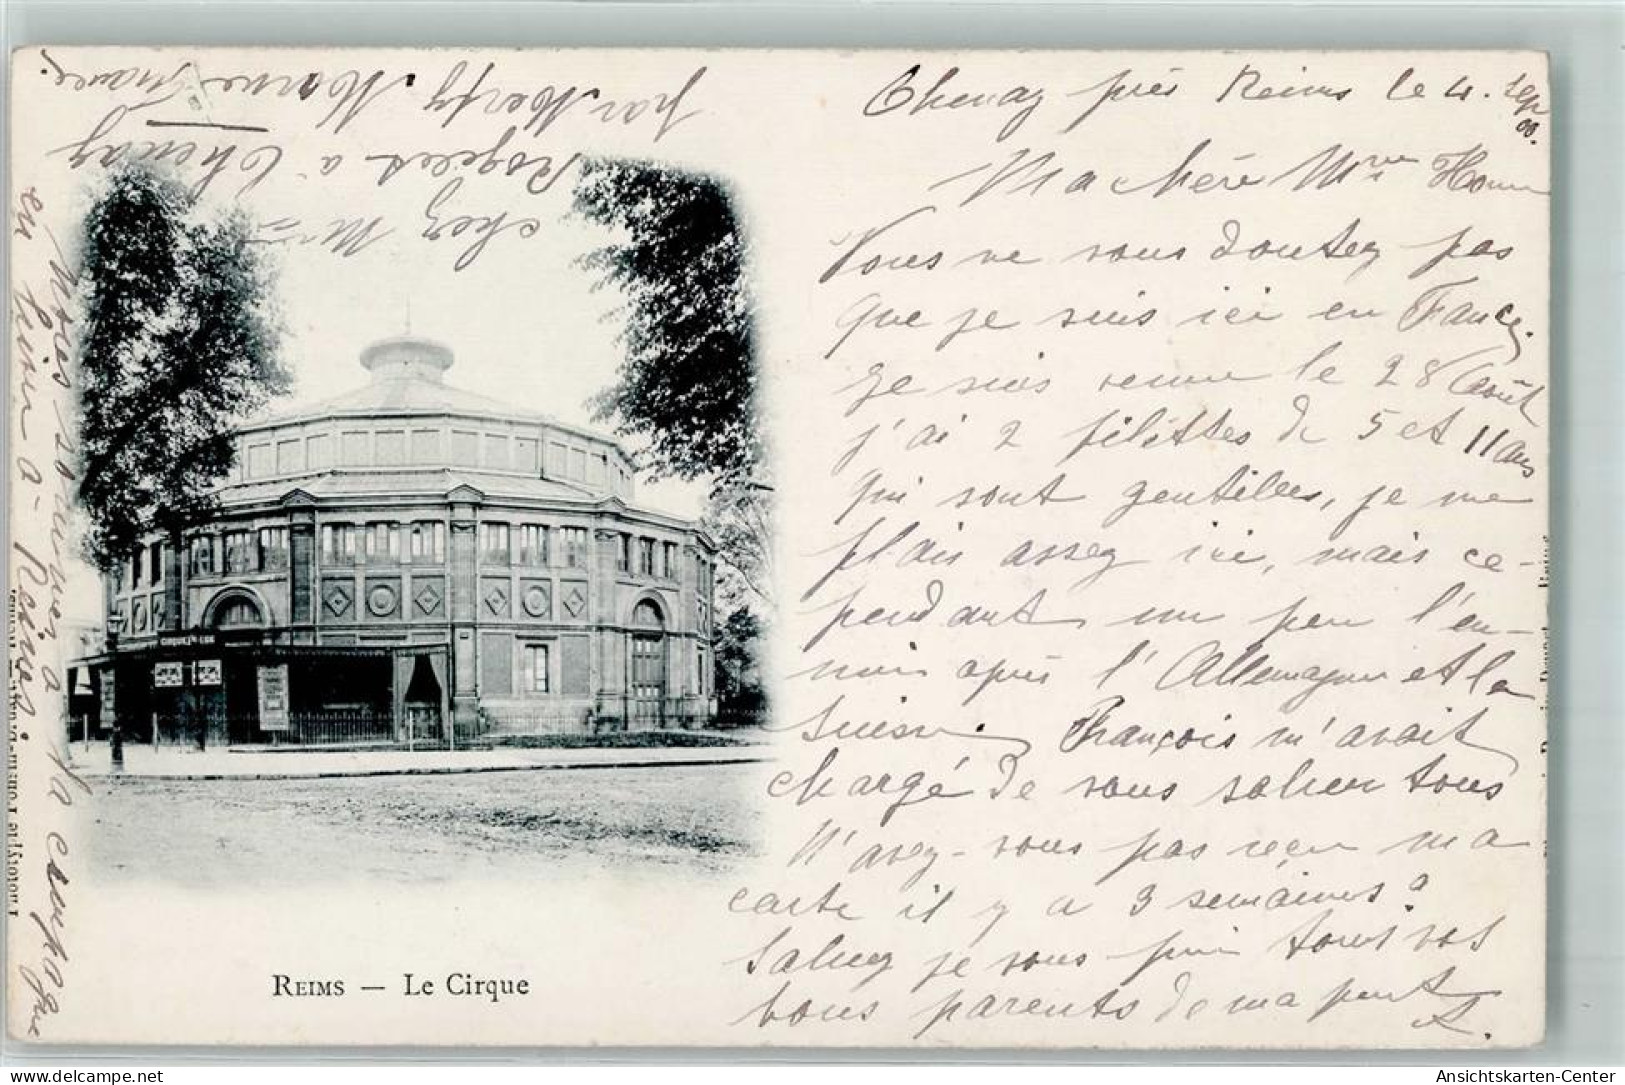 Chenay près Reims le 4. Sep
00.
Ma chère Mme
Vous ne vous doutez pas
que je suis ici en France.
Je suis venue le 28 Août
j'ai 2 filéttes de 5 et 11 ans
qui sont gentilles, je me
plais assez ici, mais ce-
pendant un peu l'en-
nui après l'Allemagne et la
Suisse. François m'avait
chargé de vous saluer tous
N'avez-vous pas reçu ma
carte il y a 3 semaines?
Saluez je vous prie tous vos
bons parents de ma part
chez Mme
à Chenay
par Merfy Marne France.
Nous sommes à la campagne
en hiver à Reims.
REIMS — Le Cirque
Ansichtskarten-Center